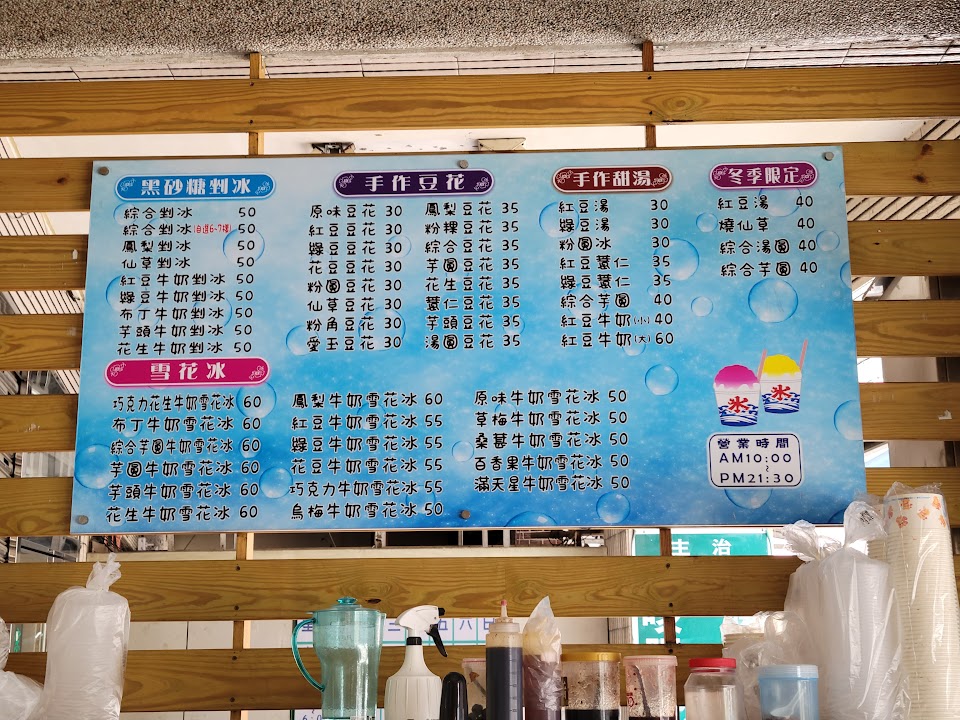 黑砂糖剉冰
綜合剉冰 50
綜合剉冰(自選6~7樣) 50
鳳梨剉冰 50
仙草剉冰 50
紅豆牛奶剉冰 50
綠豆牛奶剉冰 50
布丁牛奶剉冰 50
芋頭牛奶剉冰 50
花生牛奶剉冰 50
手作豆花
原味豆花 30
紅豆豆花 30
綠豆豆花 30
花豆豆花 30
粉圓豆花 30
仙草豆花 30
粉角豆花 30
愛玉豆花 30
鳳梨豆花 35
粉粿豆花 35
綜合豆花 35
芋圓豆花 35
花生豆花 35
薏仁豆花 35
芋頭豆花 35
湯圓豆花 35
手作甜湯
紅豆湯 30
綠豆湯 30
粉圓冰 30
紅豆薏仁 35
綠豆薏仁 35
綜合芋圓 40
紅豆牛奶(小) 40
紅豆牛奶(大) 60
冬季限定
紅豆湯 40
燒仙草 40
綜合湯圓 40
綜合芋圓 40
雪花冰
巧克力花生牛奶雪花冰 60
布丁牛奶雪花冰 60
綜合芋圓牛奶雪花冰 60
芋圓牛奶雪花冰 60
芋頭牛奶雪花冰 60
花生牛奶雪花冰 60
鳳梨牛奶雪花冰 60
紅豆牛奶雪花冰 55
綠豆牛奶雪花冰 55
花豆牛奶雪花冰 55
巧克力牛奶雪花冰 55
烏梅牛奶雪花冰 50
原味牛奶雪花冰 50
草莓牛奶雪花冰 50
桑葚牛奶雪花冰 50
百香果牛奶雪花冰 50
滿天星牛奶雪花冰 50
氷
氷
營業時間
AM10:00
~
PM21:30
主治
三
五六日